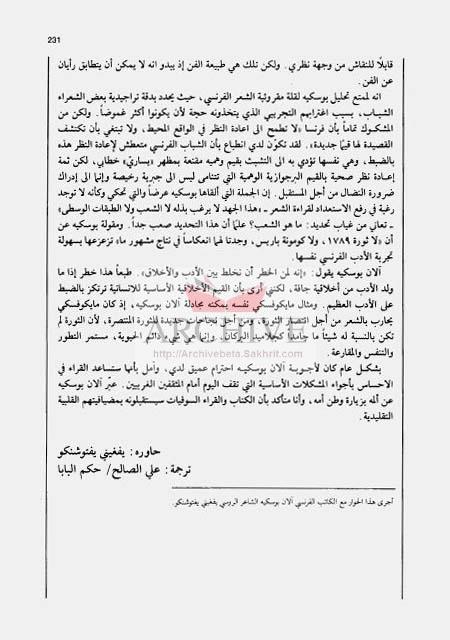 231
قابلًا للنقاش من وجهة نظري . ولكن تلك هي طبيعة الفن إذ يبدو انه لا يمكن أن يتطابق رأيان
عن الفن .
انه لممتع تحليل بوسكيه لقلة مقروئية الشعر الفرنسي ، حيث يحدد بدقة تراجيدية بعض الشعراء
الشباب ، بسبب اغترابهم التجريبي الذي يتخذونه حجة لأن يكونوا أكثر غموضاً . ولكن من
المشكوك تماماً بأن فرنسا «لا تطمح الى اعادة النظر في الواقع المحيط ، ولا تبتغي بأن تكتشف
القصيدة لها قيماً جديدة» . لقد تكوّن لدي انطباع بأن الشباب الفرنسي متعطش لإعادة النظر هذه
بالضبط ، وهي نفسها تؤدي به الى التشبث بقيم وهمية مقنعة بمظهر «يساري» خطابي ، لكن ثمة
إعادة نظر صحية بالقيم البرجوازية الوهمية التي تتنامى ليس الى جبرية رخيصة وإنما الى إدراك
ضرورة النضال من أجل المستقبل . إن الجملة التي ألقاها بوسكيه عرضاً والتي تحكي وكأنه لا توجد
رغبة في رفع الاستعداد لقراءة الشعر ـ «هذا الجهد لا يرغب بذله لا الشعب ولا الطبقات الوسطى»
ـ تعاني من غياب تحديد : ما هو الشعب؟ علمًا أن هذا التحديد صعب جداً . ومقولة بوسكيه عن
أن «لا ثورة ١٧٨٩ ، ولا كومونة باريس ، وجدتا لهما انعكاساً في نتاج مشهور ما» تزعزعها بسهولة
تجربة الأدب الفرنسي نفسها .
آلان بوسكيه يقول : «إنه لمن الخطر أن نخلط بين الأدب والأخلاق» . طبعاً هذا خطر إذا ما
ولد الأدب من أخلاقية جافة ، لكنني أرى بأن القيم الأخلاقية الأساسية للانسانية ترتكز بالضبط
على الأدب العظيم . ومثال مايكوفسكي نفسه يمكنه مجادلة آلان بوسكيه ، إذ كان مايكوفسكي
يحارب بالشعر من أجل انتصار الثورة ، ومن أجل نجاحات جديدة للثورة المنتصرة ، لأن الثورة لم
تكن بالنسبة له شيئاً ما جامداً كجلاميد البركان ، وإنما هي شيء دائم الحيوية ، مستمر التطور
والتنفس والمقارعة .
بشكل عام كان لأجوبة آلان بوسكيه احترام عميق لدي ، وآمل بأنها ستساعد القراء في
الاحساس بأجواء المشكلات الأساسية التي تقف اليوم أمام المثقفين الغربيين . عبّر آلان بوسكيه
عن ألمه بزيارة وطن أمه ، وأنا متأكد بأن الكتاب والقراء السوفيات سيستقبلونه بمضيافيتهم القلبية
التقليدية .
ARCHIVE
http://Archivebeta.Sakhrit.com
حاوره : يفغيني يفتوشنكو
ترجمة : علي الصالح / حكم البابا
أجرى هذا الحوار مع الكاتب الفرنسي آلان بوسكيه الشاعر الروسي يفغيني يفتوشنكو .